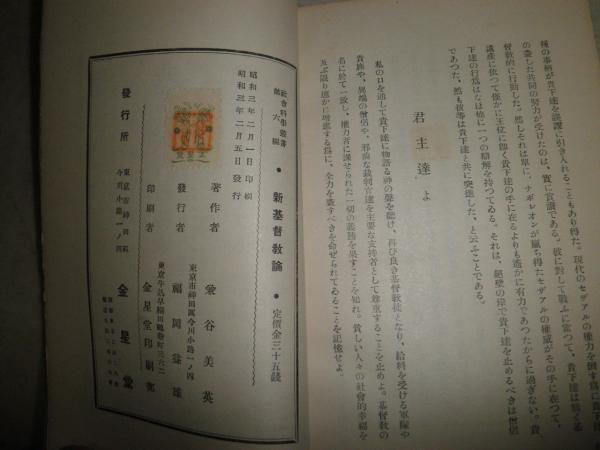 種の事柄が貴下達を謬譯に引き入れることもあり得た。現代のセザアルの権力を倒す爲に貴下達
の盡した共同の努力が受けたのは、實に賞讃である。彼に對して戰ふに當つて、貴下達は甚く基
督敎的に行動した。然しそれは單に、ナポレオンが贏ち得たセザアルの權威がその手に在つて、
貴下達の手に在るよりも遙かに有力であつたからに過ぎない。貴
下達の行爲はなほ他に一つの辯解を持つてゐる。それは、絕壁の岸で貴下達を止めるべきは僧侶
であつた、然も彼等は貴下達と共に突進した、と云ふことである。
君主達よ
私の口を通して貴下達に物語る神の聲を聽け、再び良き基督敎徒となり、給料を受ける軍隊や
貴族や、異端の僧侶や、邪惡な裁判官達を主要な支持者として尊重することを止めよ。基督敎の
名に於て一致し、權力者に課せられた一切の義務を果すことを知れ。貧しい人々の社會的幸福を
及ぶ限り速かに增進する爲に、全力を盡すべきを命ぜられてゐることを記憶せよ。
社會科學叢書
第六編
新基督敎論
定價金三十五錢
昭和三年二月一日印刷
昭和三年二月五日發行
著作者 兼谷美英
東京市神田區今川小路一ノ四
發行者 福岡益雄
東京牛込早稻田鶴卷町三六二
印刷者 金星堂印刷部
東京市神田區
今川小路一ノ四
發行所 金星堂